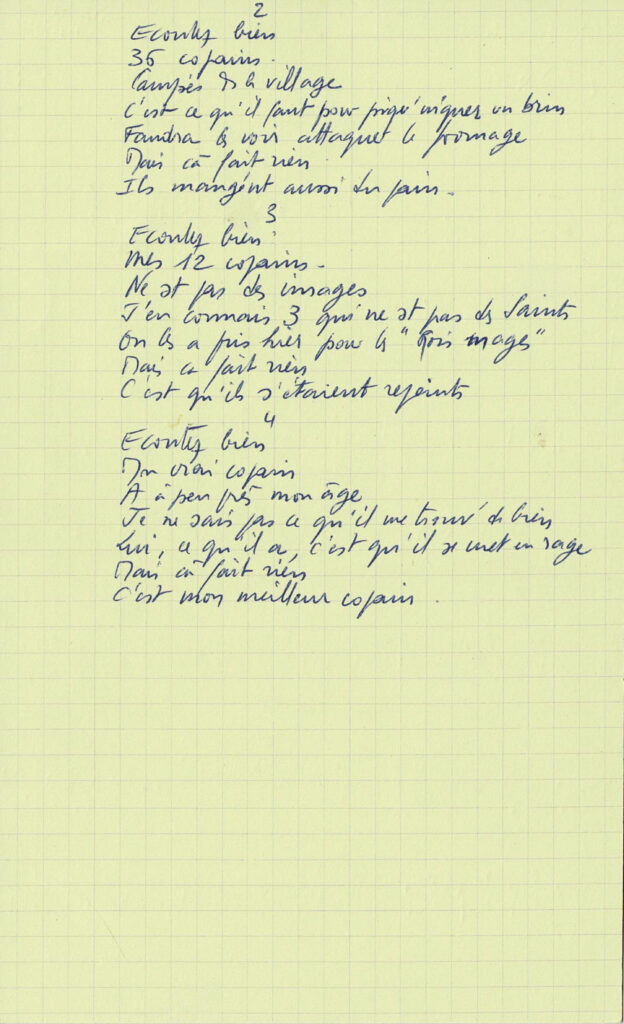 2
Ecoutez bien
36 copains.
Campés ds le village
C'est ce qu'il faut pour pique niquer un brin
Faudra les voir attaquer le fromage
Mais ça fait rien
Ils mangent aussi du pain.
3
Ecoutez bien
Mes 12 copains.
Ne st pas des images
J'en connais 3 qui ne st pas des Saints
On les a pris hier pour les "Rois mages"
Mais ca fait rien
C'est qu'ils s'étaient
4
Ecoutez bien
Mon vrai copain
A à peu près mon âge
Je ne sais pas ce qu'il me trouv' de bien
Lui, ce qu'il a, c'est qu'il se met en rage
Mais ça fait rien
C'est mon meilleur copain.